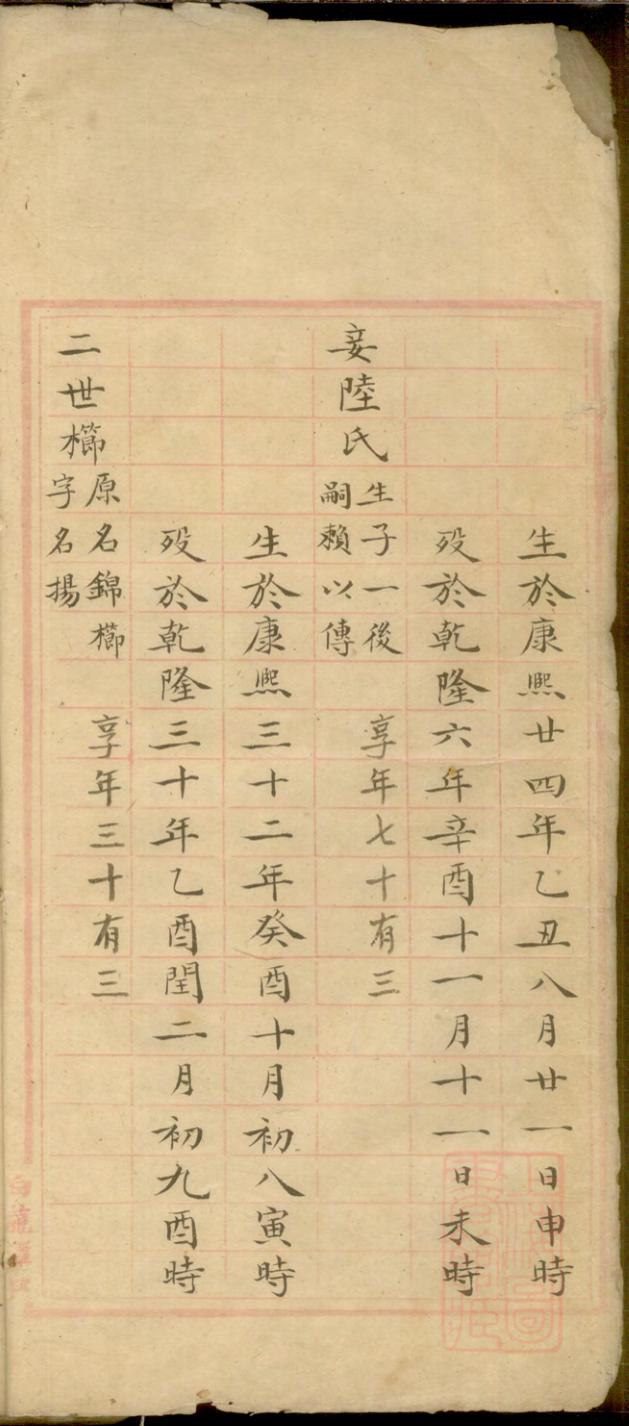 生於康熙廿四年乙丑八月廿一日申時
歿於乾隆六年辛酉十一月十一日未時
妾陸氏 生子一後嗣賴以傳 享年七十有三
生於康熙三十二年癸酉十月初八寅時
歿於乾隆三十年乙酉閏二月初九酉時
二世櫛 原名錦櫛字名揚 享年三十有三